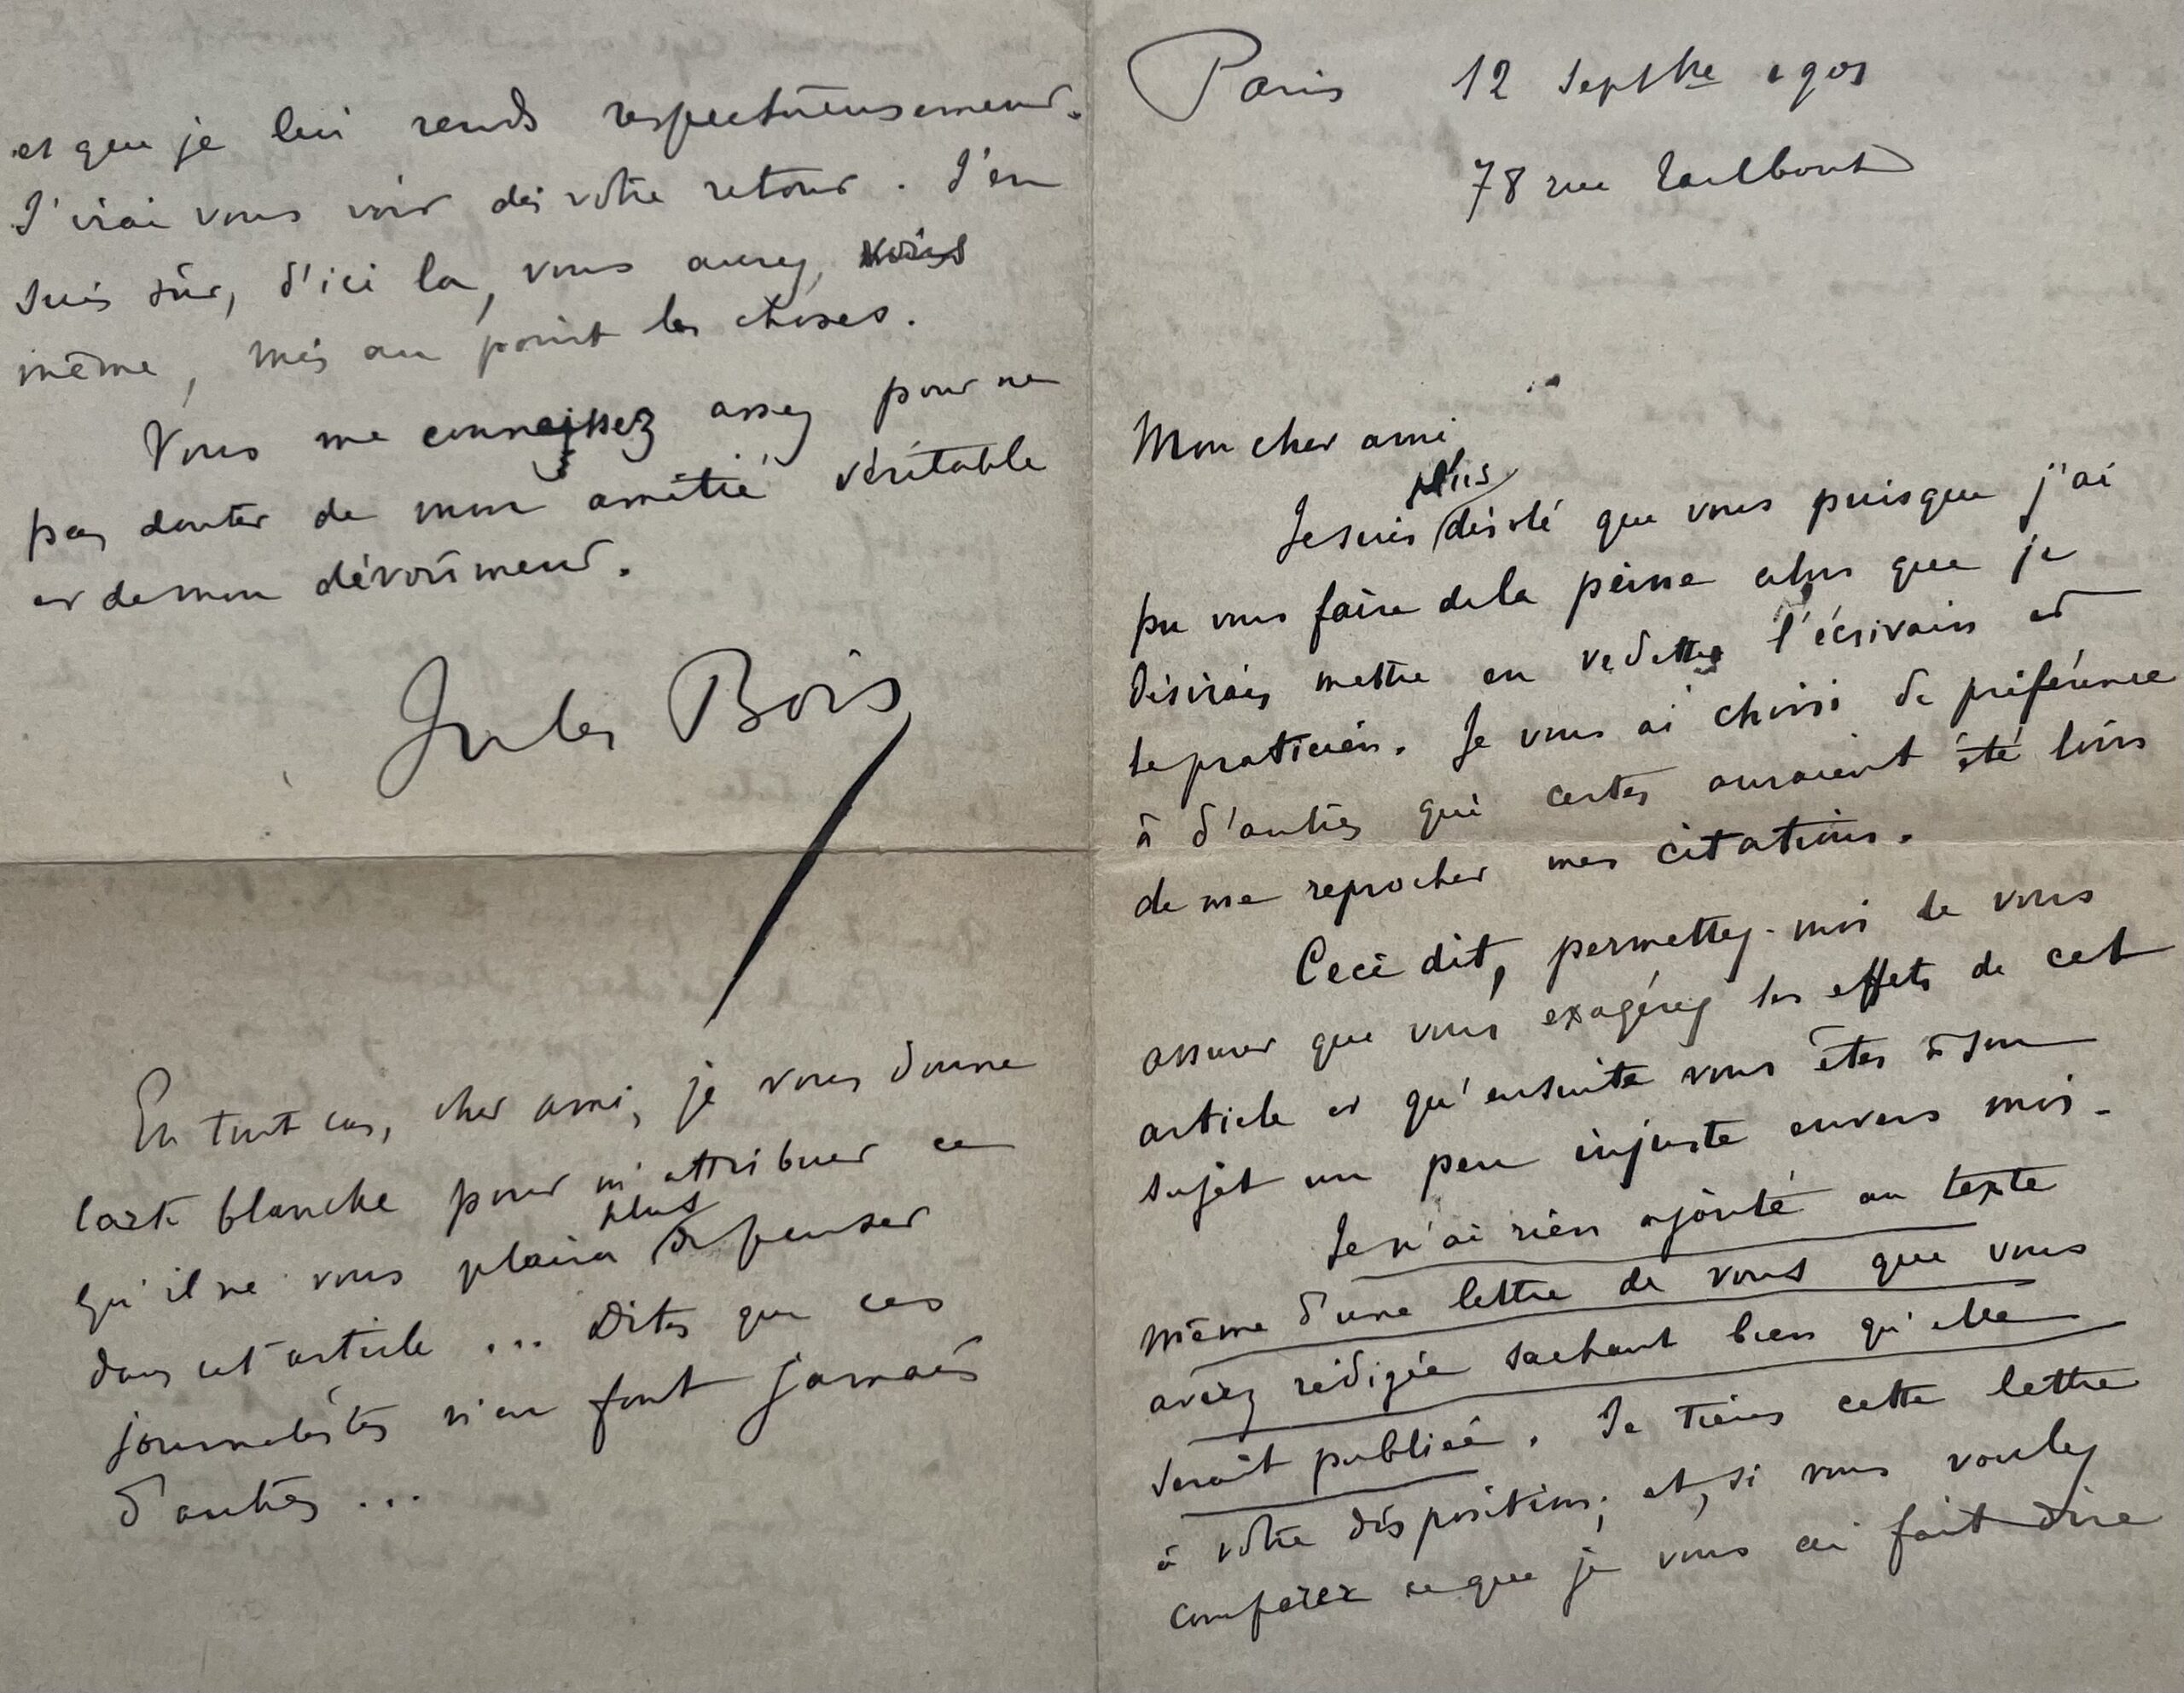 Paris 12 Septbre 1901
78 rue Taitbout
Mon cher ami
plus
Je suis désolé que vous puisque j'ai
pu vous faire de la peine alors que je
désirais mettre en vedette l'écrivain et
le praticien. Je vous ai choisi de préférence
à d'autres qui certes auraient été loin
de me reprocher mes citations.
Ceci dit, permettez-moi de vous
assurer que vous exagérez les effets de cet
article et qu'ensuite vous êtes à son
sujet un peu injuste envers moi.
Je n'ai rien ajouté au texte
même d'une lettre de vous que vous
avez rédigée sachant bien qu'elle
serait publiée. Je tiens cette lettre
à votre disposition; et, si vous voulez
comparer ce que je vous ai fait dire
et que je lui rends respectueusement.
J'irai vous voir dès votre retour. J'en
suis sûr, d'ici là, vous aurez, vous
même, mis au point les choses.
Vous me connaissez assez pour ne
pas douter de mon amitié véritable
et de mon dévoûment.
Jules Bois
En tout cas, cher ami, je vous donne
carte blanche pour m'attribuer ce
plus
qu'il ne vous plaira de penser
dans cet article ... Dites que ces
journalistes n'en font jamais
d'autres ...